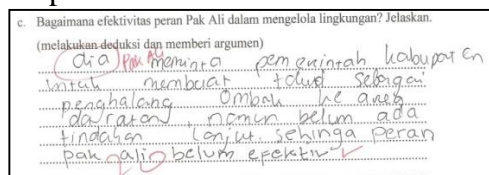 c. Bagaimana efektivitas peran Pak Ali dalam mengelola lingkungan? Jelaskan.
(melakukan deduksi dan memberi argumen)
dia Pak Ali meminta pemerintah kabupaten
untuk membuat talud sebagai
penghalang ombak ke area
daratan, namun belum ada
tindakan lanjut. sehinga peran
pak ali belum efektiv